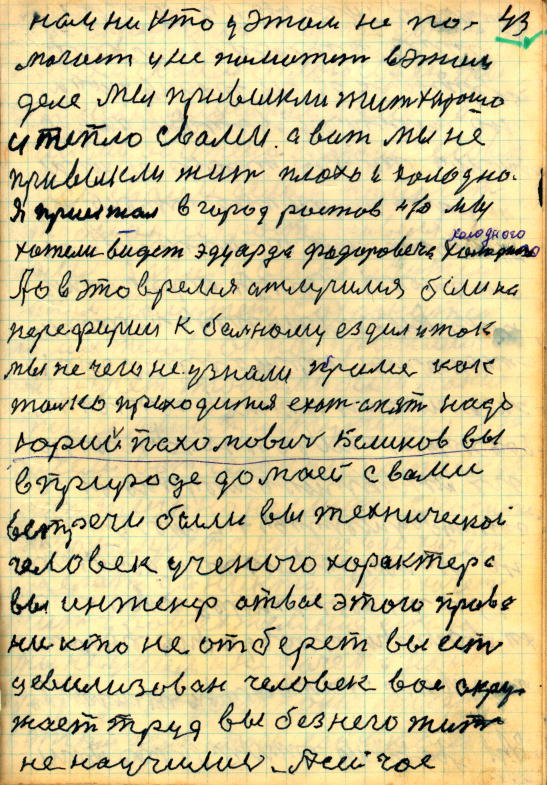 43
нам ни кто у этом не по-
могает и не поможет в этом
деле мы привыкли жит хорошо
и тепло с вами. а вот мы не
привыкли жит плохо и холодно.
Я приежал в город ростов но мы
холодного
хотели видет эдуарда фодоровеча
до в это время отлучился были на
переферии к больному ездил и так
мы не чего не узнали проме как
только приходится ехат опят надо
Юрий пахомович Беликов вы
в природе домает с вами
встречи были вы технической
человек ученого характера
вы инженер от вас этого права
ни кто не отберет вы ест
цевилизован человек вас окру-
жает труд вы без него жит
не научились. А сейчас